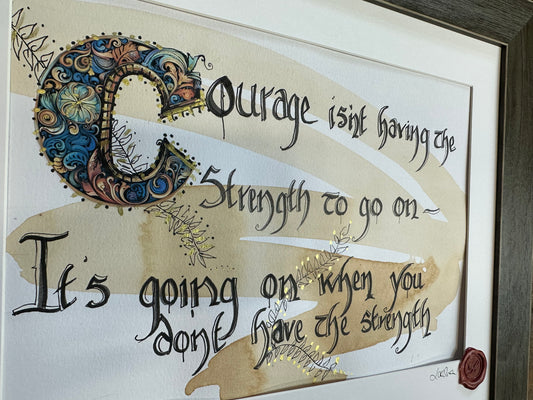 Courage isn't having the
Strength to go on ~
It's going on when you
dont have the strength